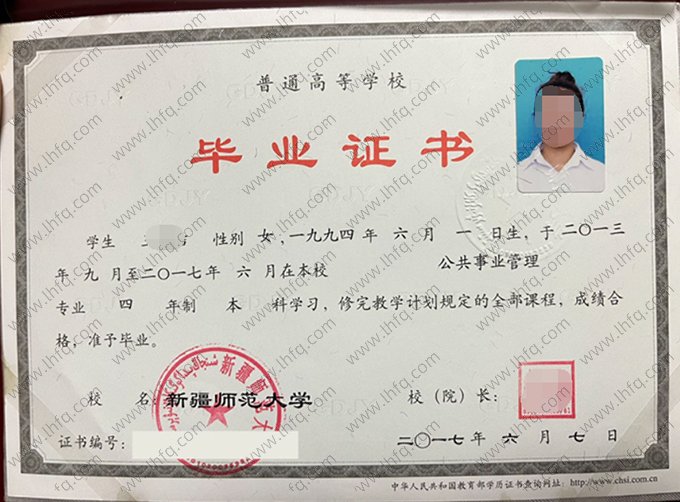 普通高等学校
毕业证书
学生 性别 女,一九九四年 六月 一日生,于二〇一三
年 九月至二〇一七年 六月在本校 公共事业管理
专业 四 年制 本 科学习,修完教学计划规定的全部课程,成绩合
格,准予毕业。
校 名:新疆师范大学 校(院)长:
证书编号: 二〇一七年 六月七日
中华人民共和国教育部学历证书查询网址:http://www.chsi.com.cn
新疆师范大
www.lhfq.com